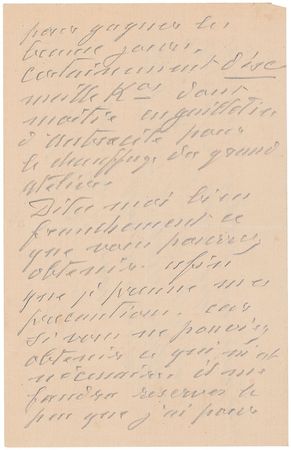 pour gagner les
bonne jours,
certainement dix
mille Kos dont
moitié en gailletin
d'antracite pour
le chauffage du grand
atelier.
Dites moi bien
franchement ce
que vous pouvez
obtenir. afin
que je prenne mes
précautions. car
si vous ne pouviez
obtenir ce qui m'est
nécessaire il me
faudra réserver le
peu que j'ai pour